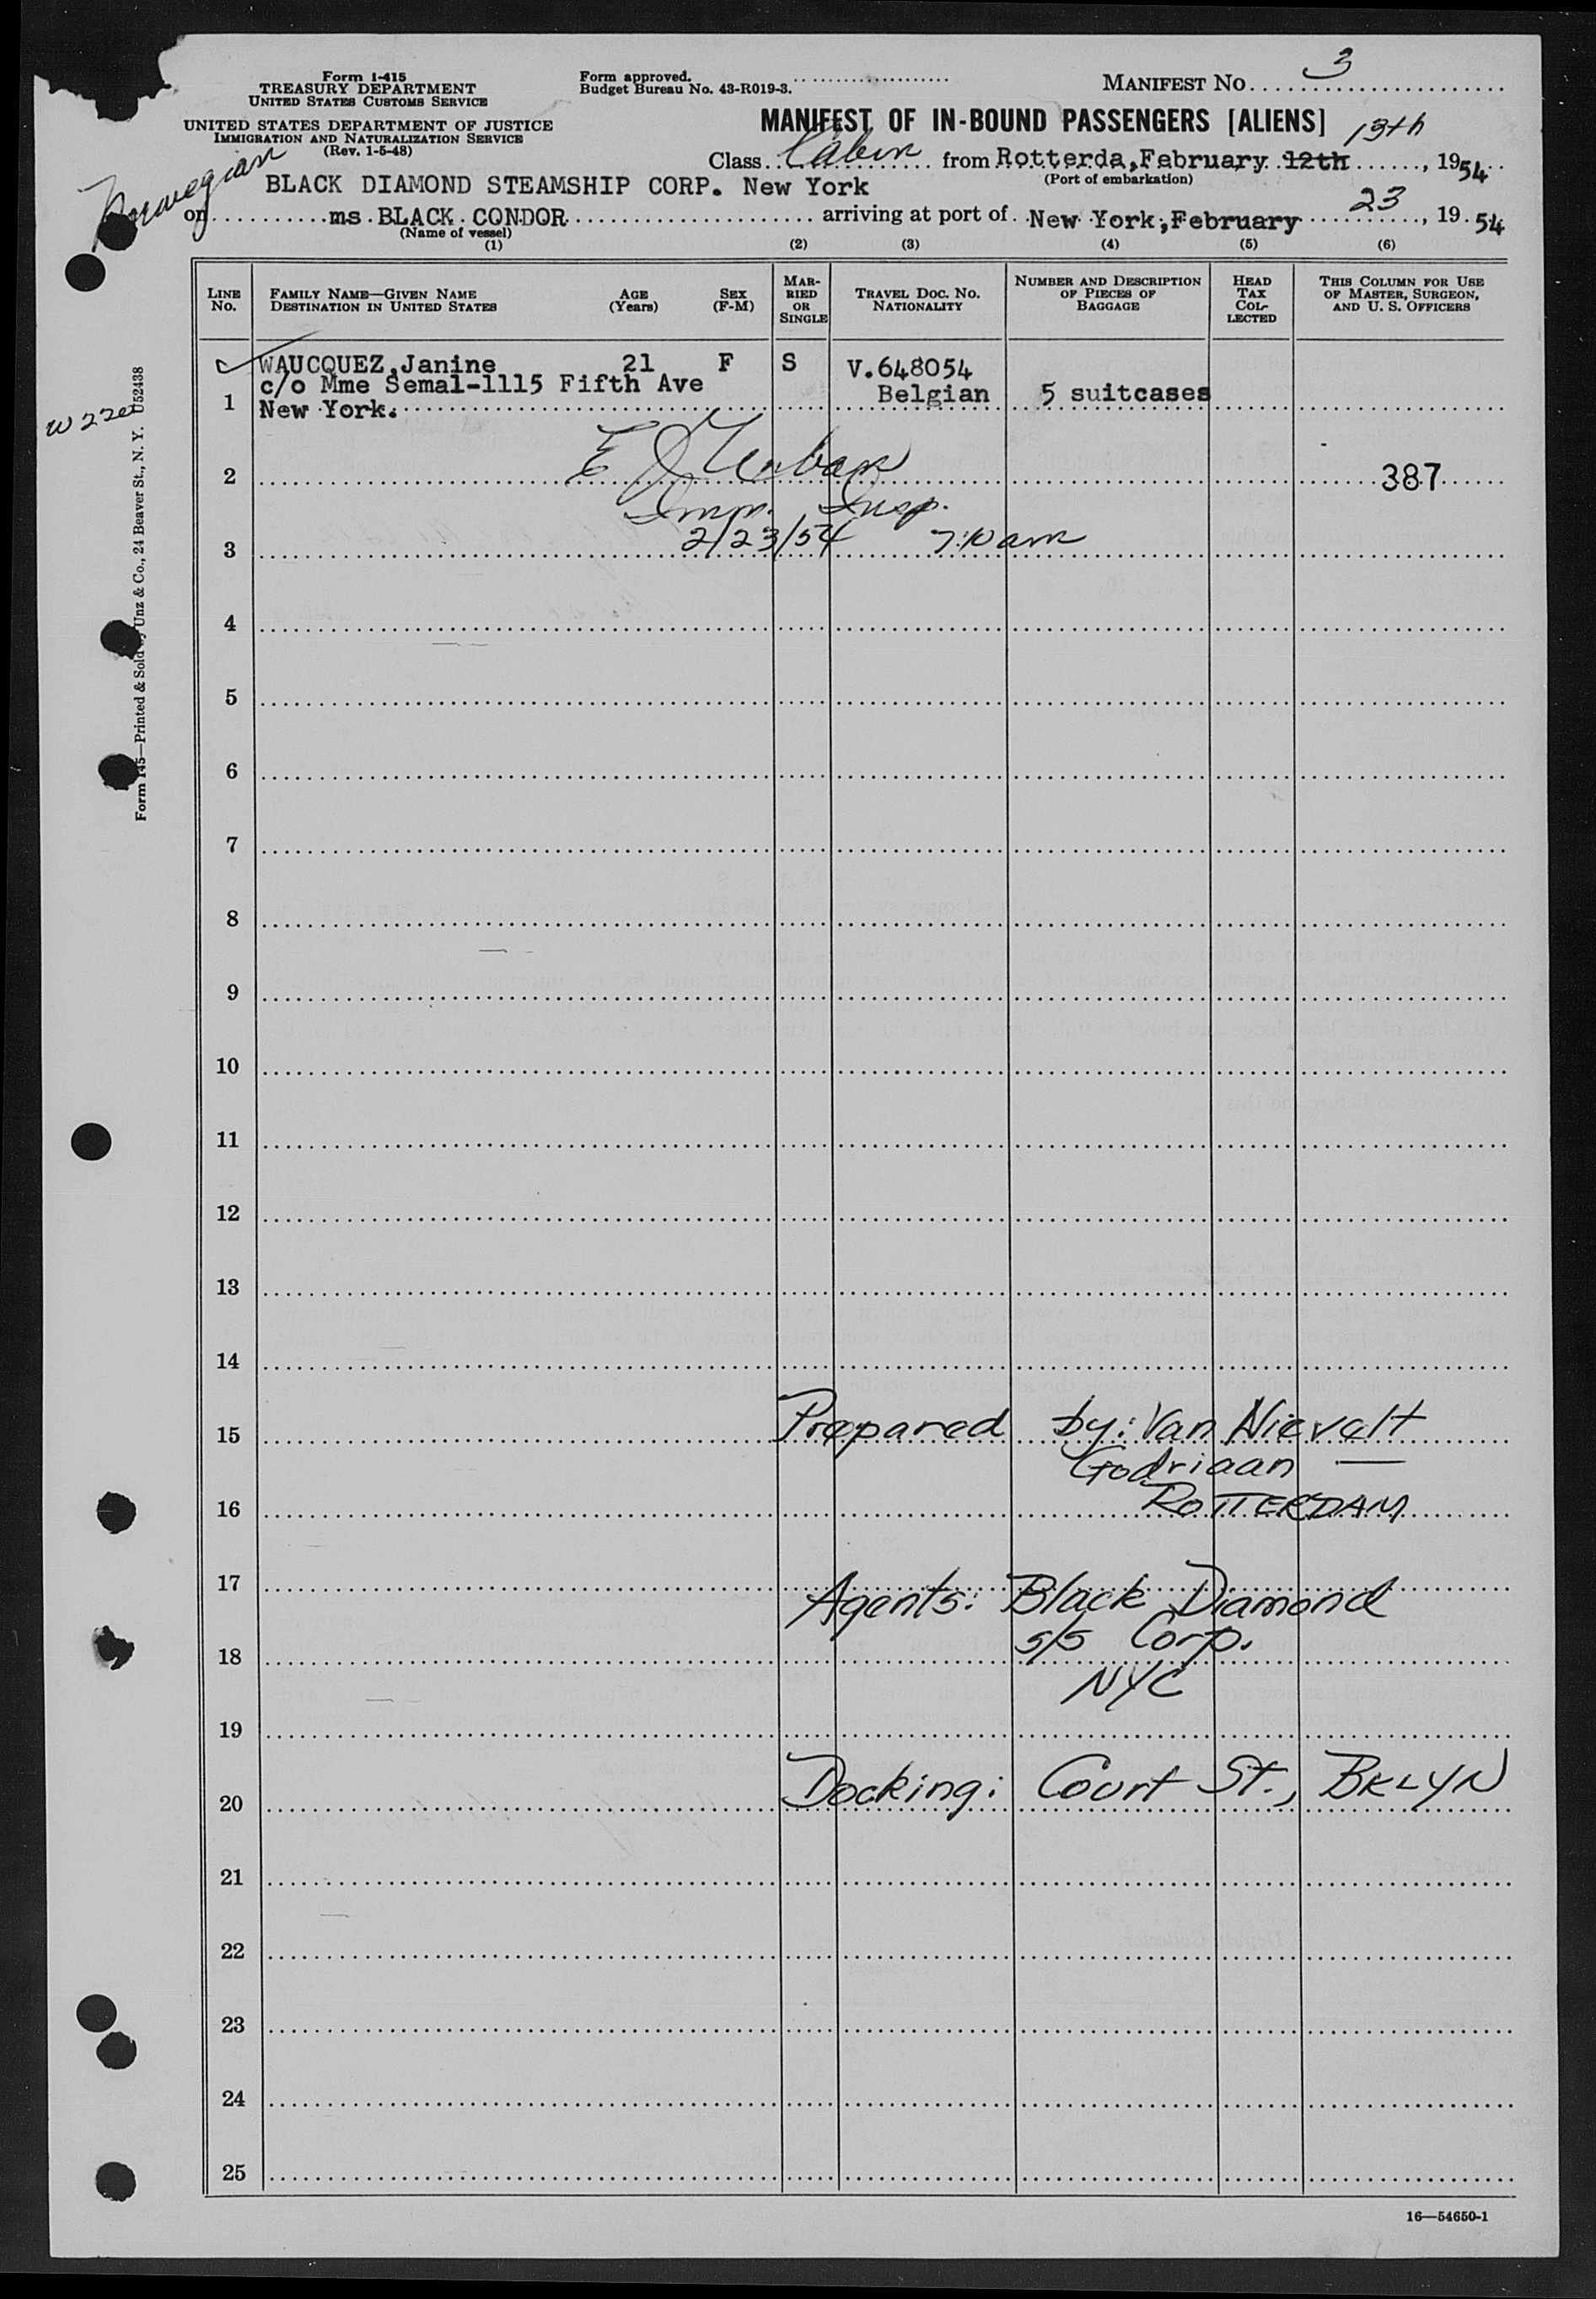 Form I-415
TREASURY DEPARTMENT
UNITED STATES CUSTOMS SERVICE
UNITED STATES DEPARTMENT OF JUSTICE
IMMIGRATION AND NATURALIZATION SERVICE
(Rev. 1-5-48)
Form approved.
Budget Bureau No. 43-R019-3.
MANIFEST NO. 3
MANIFEST OF IN-BOUND PASSENGERS [ALIENS]
13th
Class Cabin from Rotterda, February 12th, 1954
(Port of embarkation)
Norwegian
BLACK DIAMOND STEAMSHIP CORP. New York
on ms BLACK CONDOR arriving at port of New York, February 23, 1954
(Name of vessel)
(1) (2) (3) (4) (5) (6)
LINE NO.
FAMILY NAME—GIVEN NAME
DESTINATION IN UNITED STATES
AGE (Years)
SEX (F-M)
MARRIED OR SINGLE
TRAVEL DOC. NO.
NATIONALITY
NUMBER AND DESCRIPTION OF PIECES OF BAGGAGE
HEAD TAX COLLECTED
THIS COLUMN FOR USE OF MASTER, SURGEON, AND U. S. OFFICERS
WAUCQUEZ, Janine 21 F S V.648054
c/o Mme Semal-1115 Fifth Ave
1 New York. Belgian 5 suitcases
2 387
Imm. Insp.
3 2/23/54 7:10 am
4
5
6
7
8
9
10
11
12
13
14
15 Prepared by: Van Nievelt
Godriaan —
16 ROTTERDAM
17 Agents: Black Diamond
18 s/s Corp.
NYC
19
20 Docking: Court St., BKLYN
21
22
23
24
25
16—54650-1
Form 145—Printed & Sold by Unz & Co., 24 Beaver St., N. Y. U52438